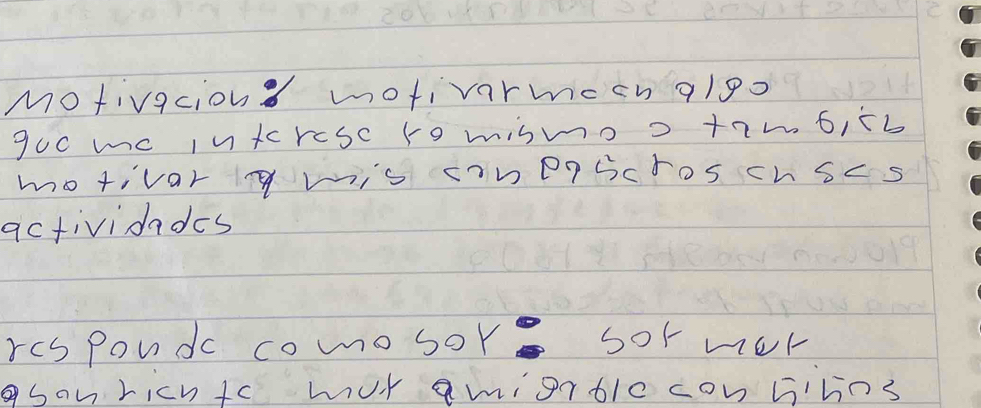 Motivacion: motivarme en algo
que me interese yo mismo o tambien
motivar a mis compañeros en ses
actividades
responde como soy: soy muy
asonriente muy amigable con niños